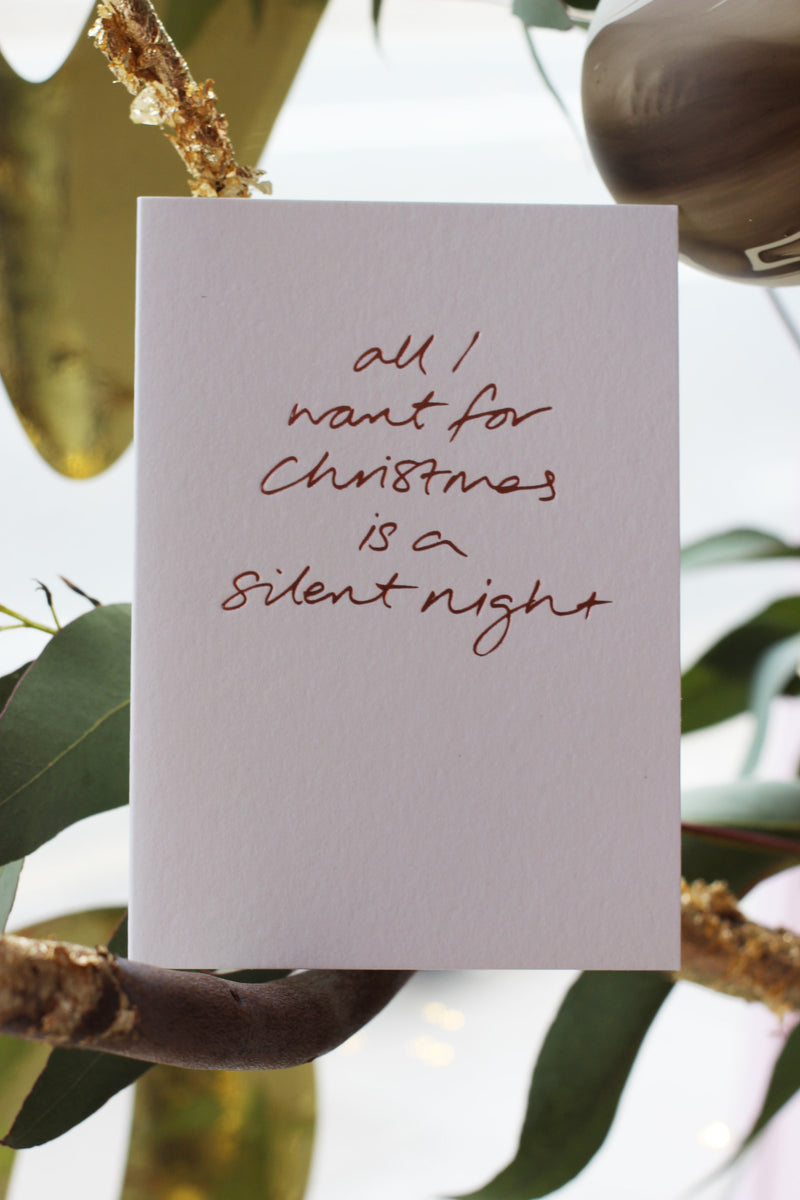 all I
want for
Christmas
is a
silent night